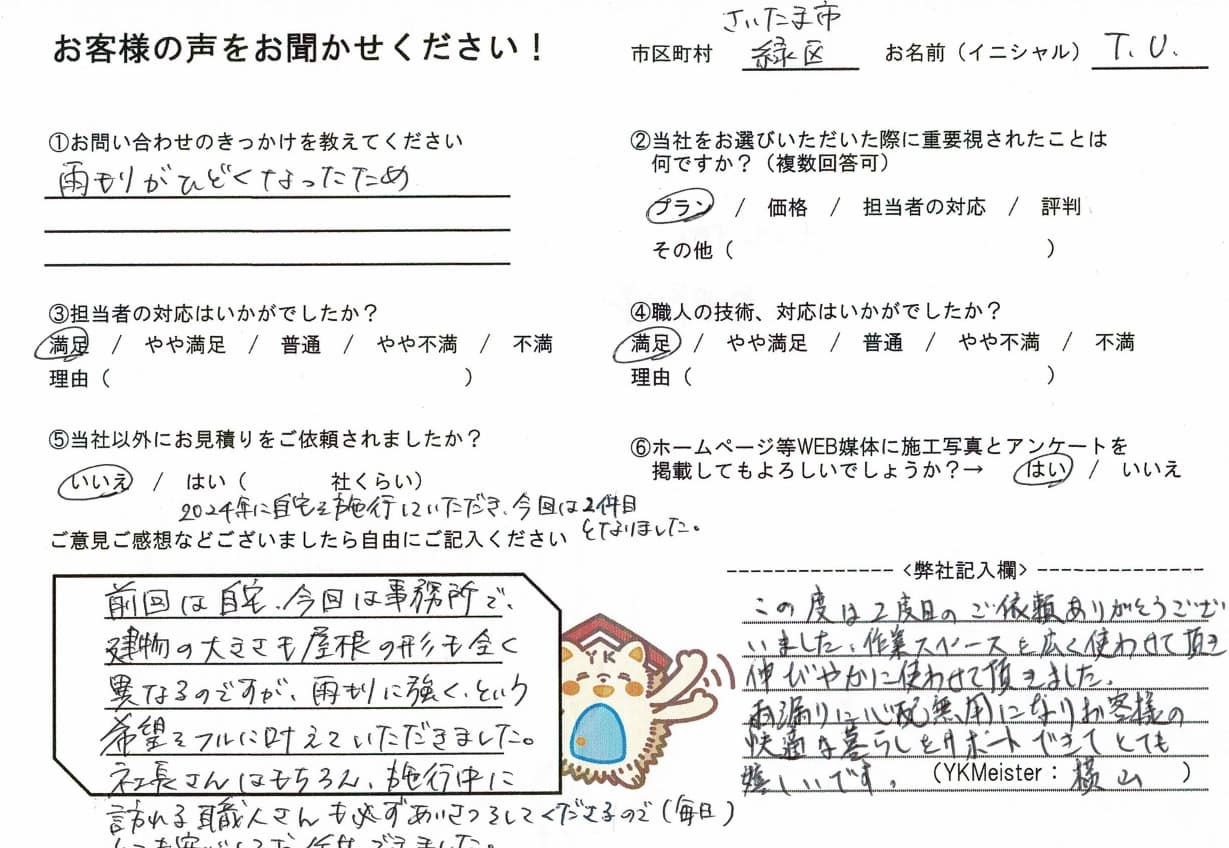 お客様の声をお聞かせください！
市区町村 さいたま市
緑区
お名前（イニシャル） T.U.
①お問い合わせのきっかけを教えてください
雨もりがひどくなったため
②当社をお選びいただいた際に重要視されたことは
何ですか？（複数回答可）
プラン / 価格 / 担当者の対応 / 評判
その他（ ）
③担当者の対応はいかがでしたか？
満足 / やや満足 / 普通 / やや不満 / 不満
理由（ ）
④職人の技術、対応はいかがでしたか？
満足 / やや満足 / 普通 / やや不満 / 不満
理由（ ）
⑤当社以外にお見積りをご依頼されましたか？
いいえ / はい（ 社くらい）
2024年に自宅を施行していただき、今回は2件目
となりました。
⑥ホームページ等WEB媒体に施工写真とアンケートを
掲載してもよろしいでしょうか？→ はい / いいえ
ご意見ご感想などございましたら自由にご記入ください
前回は自宅、今回は事務所で、
建物の大きさも屋根の形も全く
異なるのですが、雨もりに強く、という
希望をフルに叶えていただきました。
社長さんはもちろん、施行中に
訪れる職人さんも必ずあいさつをしてくださるので（毎日）
YK
<弊社記入欄>
この度は2度目のご依頼ありがとうござい
いました。作業スペースを広く使わせて頂き
伸びやかに使わせて頂きました。
雨漏りに心配無用になりお客様の
快適な暮らしをサポートできてとても
嬉しいです。 （YKMeister：横山 ）